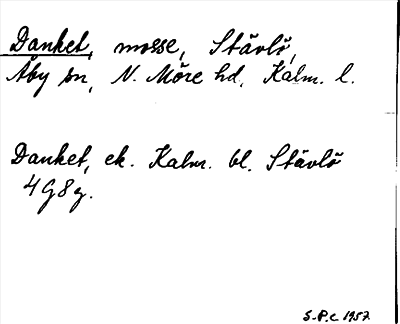 Danket, mosse, Stävlö,
Åby sn, N. Möre hd, Kalm. l.
Danket, ek. Kalm. bl. Stävlö
4G8g.
S.P.c 1957